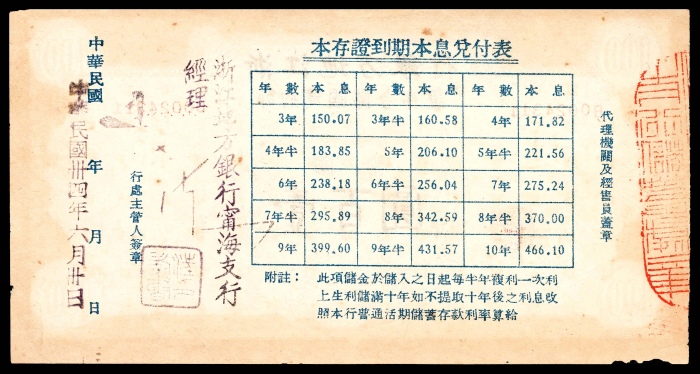 本存證到期本息兌付表
年數 本息 年數 本息 年數 本息
3年 150.07 3年半 160.58 4年 171.82
4年半 183.85 5年 206.10 5年半 221.56
6年 238.18 6年半 256.04 7年 275.24
7年半 295.89 8年 342.59 8年半 370.00
9年 399.60 9年半 431.57 10年 466.10
附註： 此項儲金於儲入之日起每半年複利一次利
上生利儲滿十年如不提取十年後之利息改
照本行普通活期儲蓄存款利率算給
代理機關及經售員蓋章
浙江地方銀行甯海支行
經理
行處主管人簽章
中華民國 年 月 日
民國卅四年六月卅日